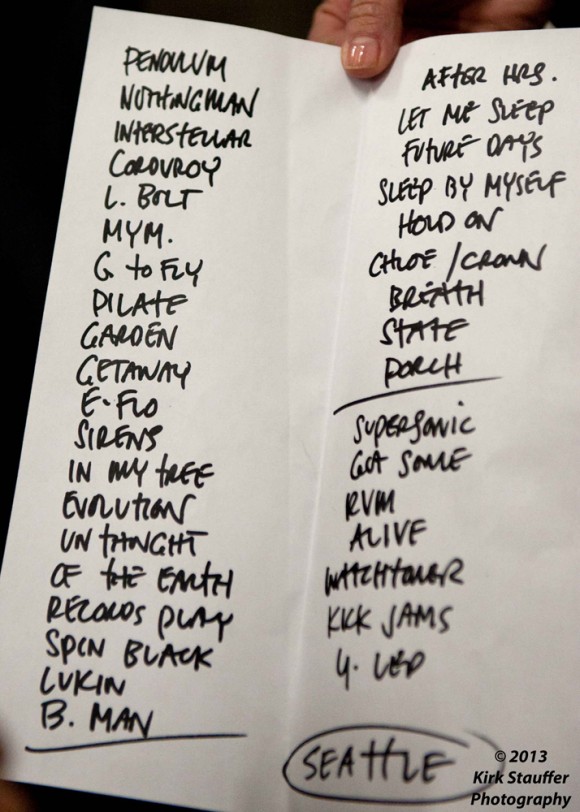 PENDULUM
NOTHINGMAN
INTERSTELLAR
CORDUROY
L. BOLT
MYM.
G. to FLY
DILATE
GARDEN
GETAWAY
E-FLO
SIRENS
IN MY TREE
EVOLUTION
UNTHOUGHT
OF THE EARTH
RECORDS PLAY
SPIN BLACK
LUKIN
B. MAN
AFTER HRS.
LET ME SLEEP
FUTURE DAYS
SLEEP BY MYSELF
HOLD ON
CHLOE / CROWN
BREATH
STATE
PORCH
SUPERSONIC
GOT SOME
RVM
ALIVE
WATCHTOWER
KICK JAMS
Y. LED
SEATTLE
© 2013
Kirk Stauffer
Photography